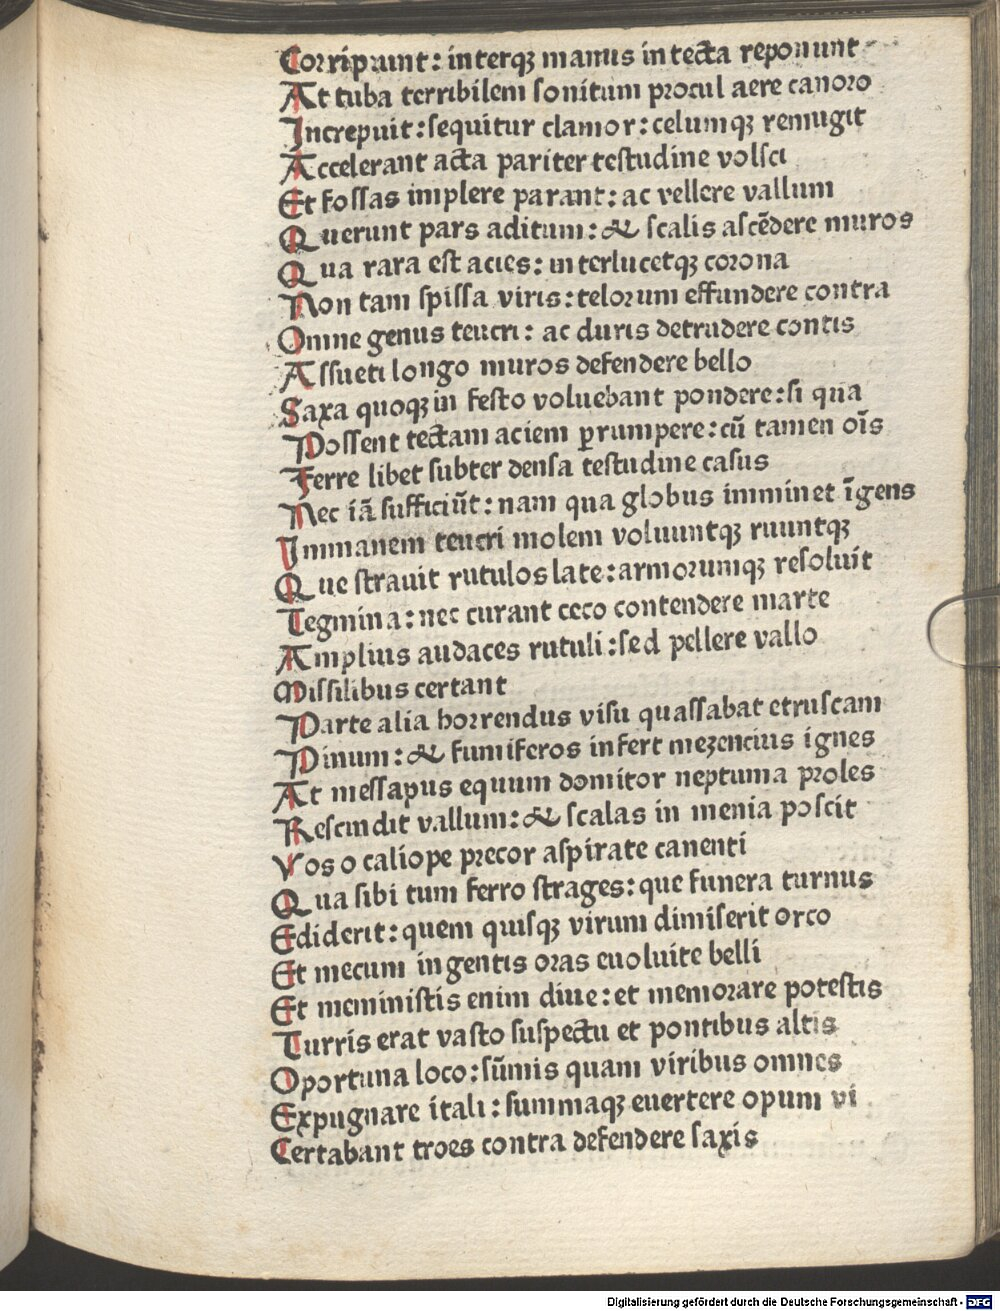 Corripiunt: interqꝫ manus in tecta reponunt
At tuba terribilem sonitum procul aere canoro
Increpuit: sequitur clamor: celumqꝫ remugit
Accelerant acta pariter testudine volsci
Et fossas implere parant: ac vellere vallum
Querunt pars aditum: & scalis ascēdere muros
Qua rara est acies: interlucetqꝫ corona
Non tam spissa viris: telorum effundere contra
Omne genus teucri: ac duris detrudere contis
Assueti longo muros defendere bello
Saxa quoqꝫ in festo voluebant pondere: si qua
Possent tectam aciem ꝑrumpere: cū tamen oīs
Ferre libet subter densa testudine casus
Nec iā sufficiūt: nam qua globus imminet īgens
Immanem teucri molem voluuntqꝫ ruuntqꝫ
Que stravit rutulos late: armorumqꝫ resoluit
Tegmina: nec curant ceco contendere marte
Amplius audaces rutuli: sed pellere vallo
Missilibus certant
Parte alia horrendus visu quassabat etruscam
Pinum: & fumiferos infert mezencius ignes
At messapus equum domitor neptunia proles
Rescindit vallum: & scalas in menia poscit
Vos o caliope precor aspirate canenti
Qua sibi tum ferro strages: que funera turnus
Ediderit: quem quisqꝫ virum dimiserit orco
Et mecum ingentis oras euoluite belli
Et meministis enim diue: et memorare potestis
Turris erat vasto suspectu et pontibus altis
Oportuna loco: sūmis quam viribus omnes
Expugnare itali: summaqꝫ euertere opum vi
Certabant troes contra defendere saxis
Digitalisierung gefördert durch die Deutsche Forschungsgemeinschaft - DFG